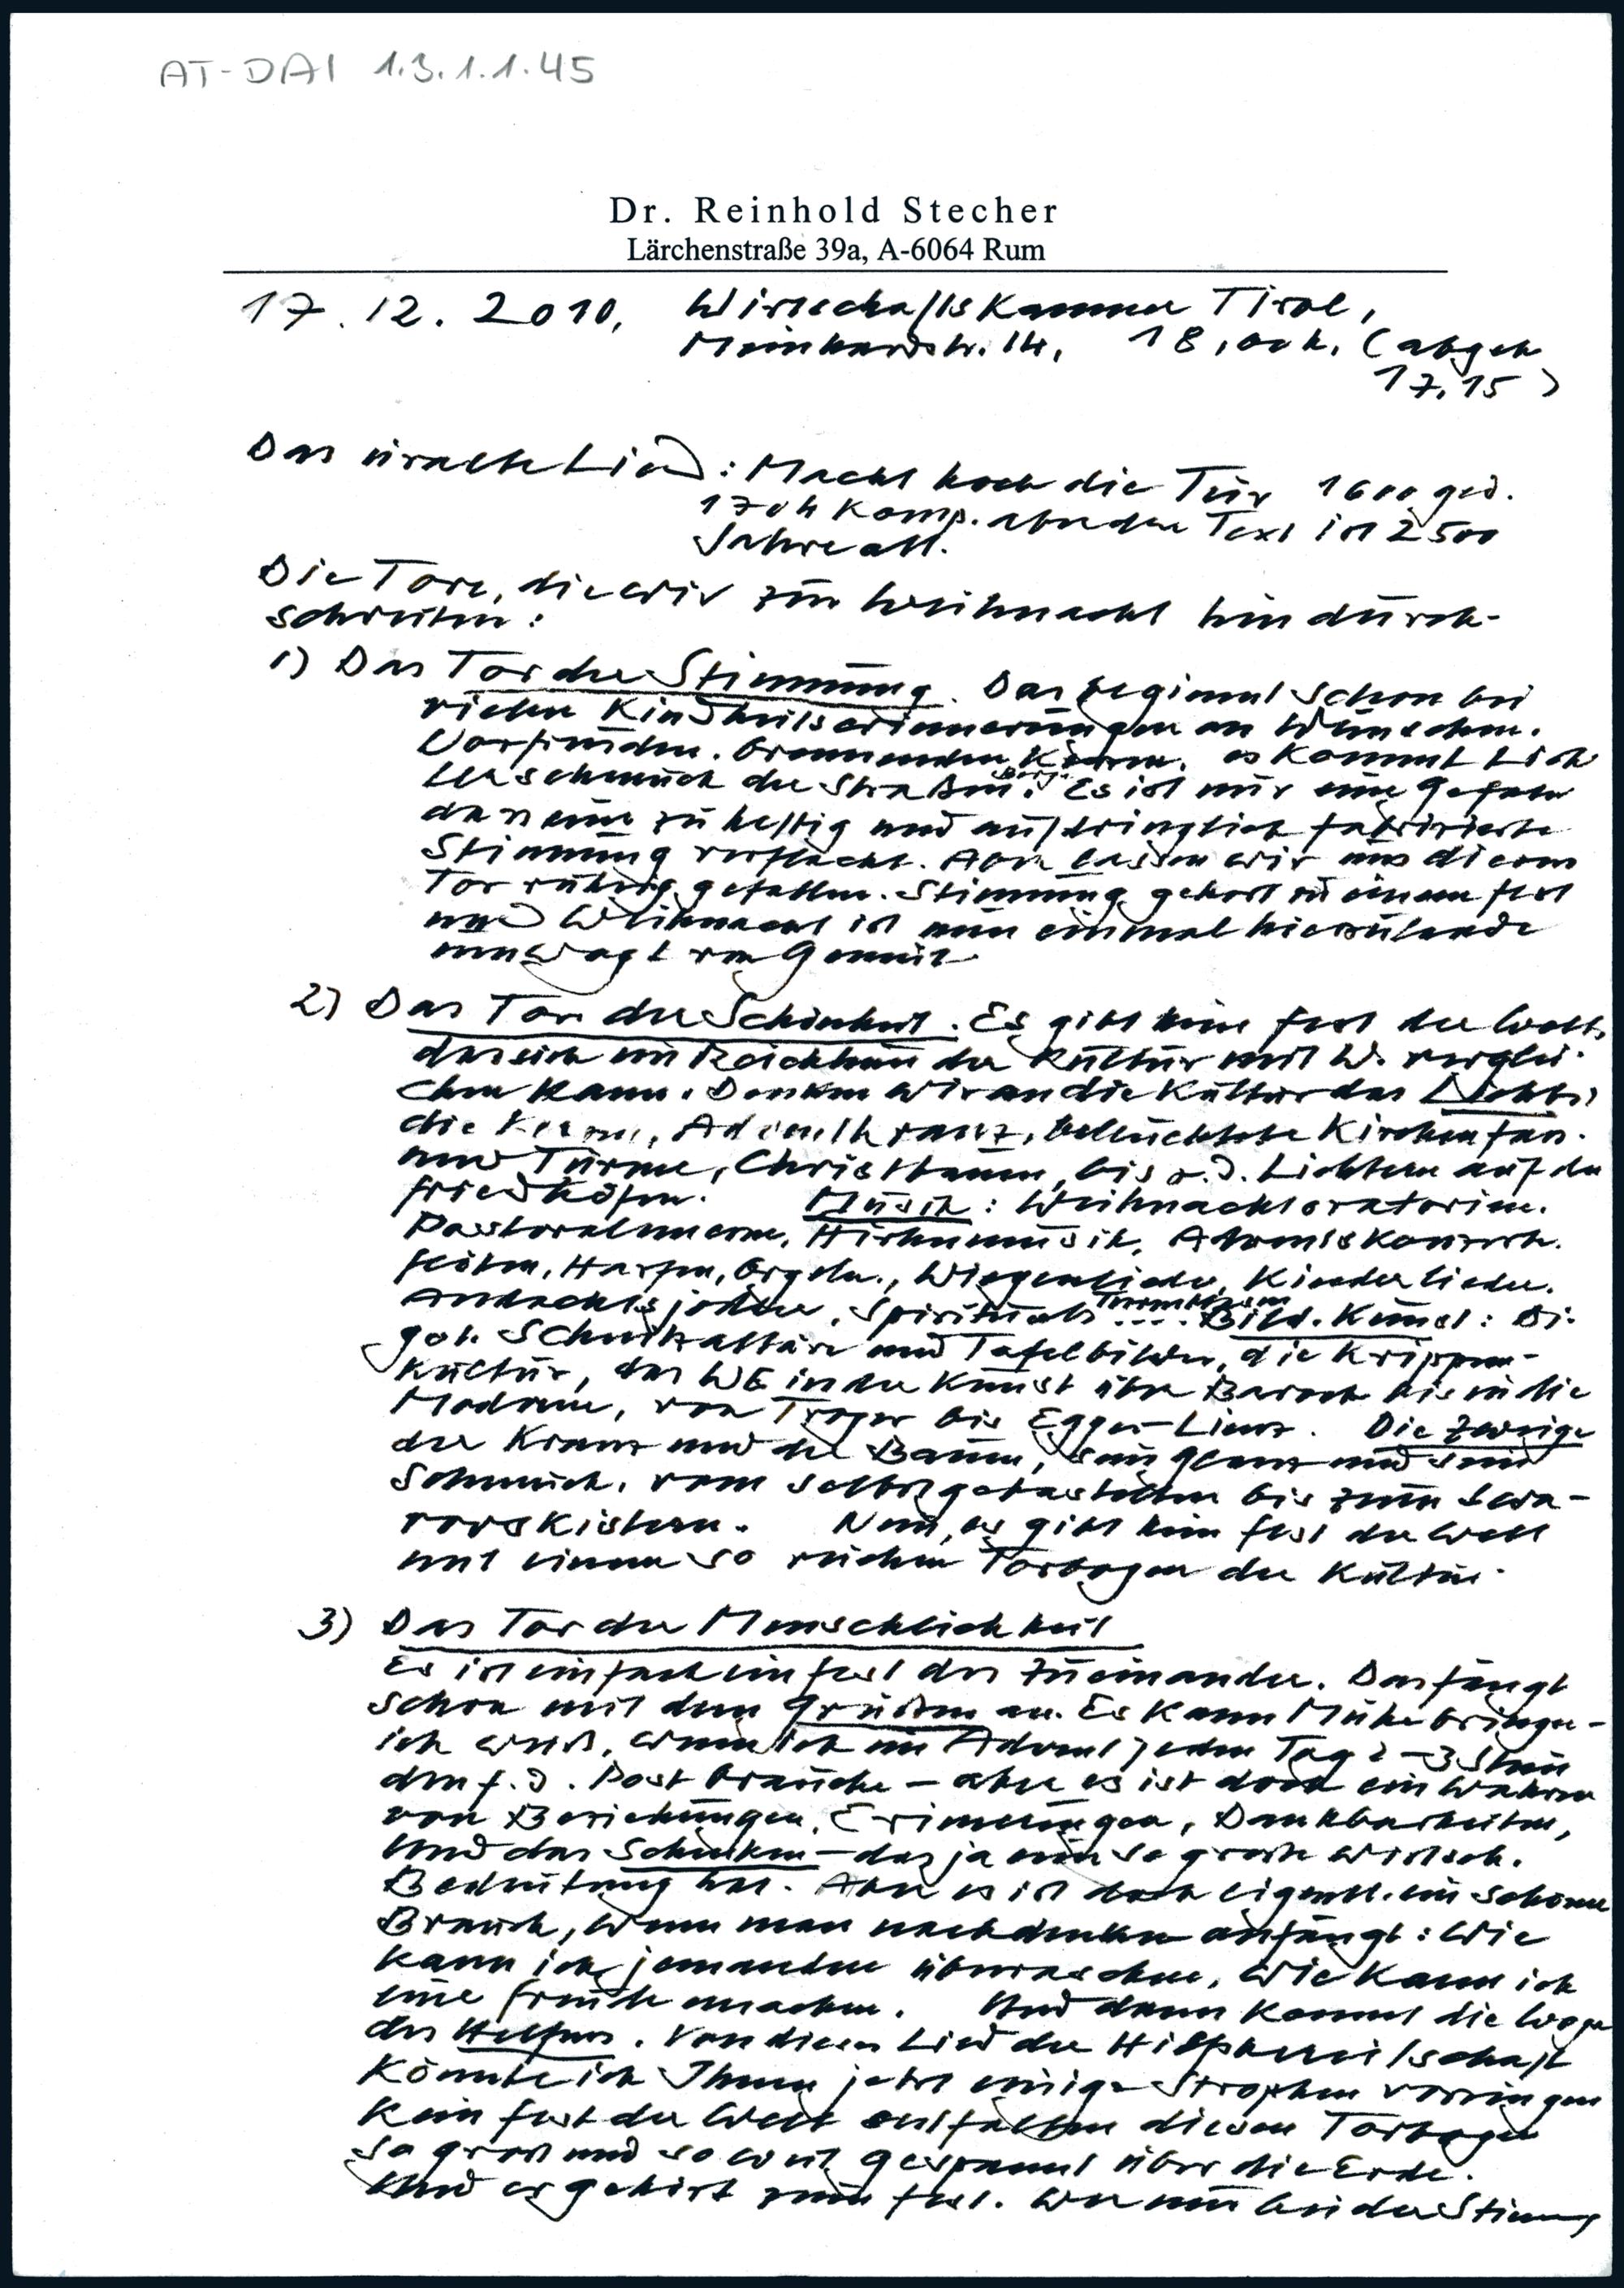 AT-DAI 1.3.1.1.45
Dr. Reinhold Stecher
Lärchenstraße 39a, A-6064 Rum
17.12.2010, Wirtschaftskammer Tirol,
Meinhardstr. 14, 18,00 h. (abgeh
17,15)
Das uralte Lied: Macht hoch die Tür 1600 ged.
1704 Komp. aber der Text ist 2500
Jahre alt.
Die Tore, die wir zur Weihnacht hindurch-
schreiten:
1) Das Tor der Stimmung. Das beginnt schon bei
vielen Kindheitserinnerungen an Wünschen.
Vorfreuden. brennenden Kerzen. es kommt Lich
terschmuck der Straßen. Es ist nur eine Gefahr
dass eine zu heftig und aufdringlich fabrizierte
Stimmung verflacht. Aber lassen wir uns dieses
Tor ruhig gefallen. Stimmung gehört zu einem Fest
und Weihnacht ist nun einmal hierzulande
umwogt von Gemüt
2) Das Tor der Schönheit. Es gibt kein Fest der Welt,
das sich im Reichtum der Kultur mit W. verglei-
chen kann. Denken wir an die Kultur des Lichts:
die Kerzen, Adventkranz, beleuchtete Kirchenfas.
und Türme, Christbaum, bis z.d. Lichtern auf den
Friedhöfen. Musik: Weihnachtsoratorien.
Pastoralmessen, Hirtenmusik, Adventskonzerte.
Flöten, Harfen, Orgeln., Wiegenlieder, Kinderlieder.
Andachtsjodler, Spirituals Turmblasen .... Bild. Kunst: Di.
got. Schnitzaltäre und Tafelbilder, die Krippen-
kultur, das WE in der Kunst über Barock bis in die
Moderne, von Troger bis Egger-Lienz. Die Zweige
der Kranz und der Baum, sein Glanz und sein
Schmuck, vom selbstgebastelten bis zum Swa-
rovskistern. Nein, es gibt kein Fest der Welt
mit einem so reichen Torbogen der Kultur.
3) Das Tor der Menschlichkeit
Es ist einfach ein Fest des Zueinander. Das fängt
schon mit dem Grüßen an. Es kann Mühe bringen-
ich weiß, wenn ich im Advent jeden Tag 2-3 Stun
den f.d. Post brauche - aber es ist doch ein Wahren
von Beziehungen, Erinnerungen, Dankbarkeiten,
Und das Schenken - das ja eine so große wirtsch.
Bedeutung hat. Aber es ist doch eigentl. ein schöner
Brauch, wenn man nachdenken anfängt: Wie
kann ich jemanden überraschen, wie kann ich
eine Freude machen. Und dann kommt die Woge
des Helfens. Von diesem Lied der Hilfsbereitschaft
könnte ich Ihnen jetzt einige Strophen vorsingen
Kein Fest der Welt entfaltet diesen Torbogen
so groß und so weit gespannt über die Erde.
Und er gehört zum Fest. Wer nur bei der Stimmung